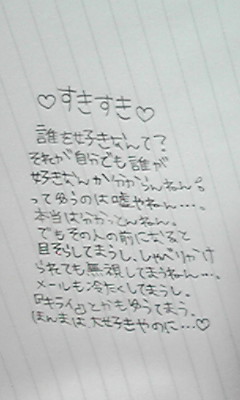 ♡すきすき♡
誰を好きなんて？
それが自分でも誰が
好きなんか分からんねん。
ってゆうのは嘘やねん…。
本当は分かっとんねん。
でもその人の前になると
目そらしてまうし、しゃべりかけ
られても無視してまうねん…。
メールも冷たくしてまうし。
『キライ』とかもゆうてまう。
ほんまは大好きやのに…♡